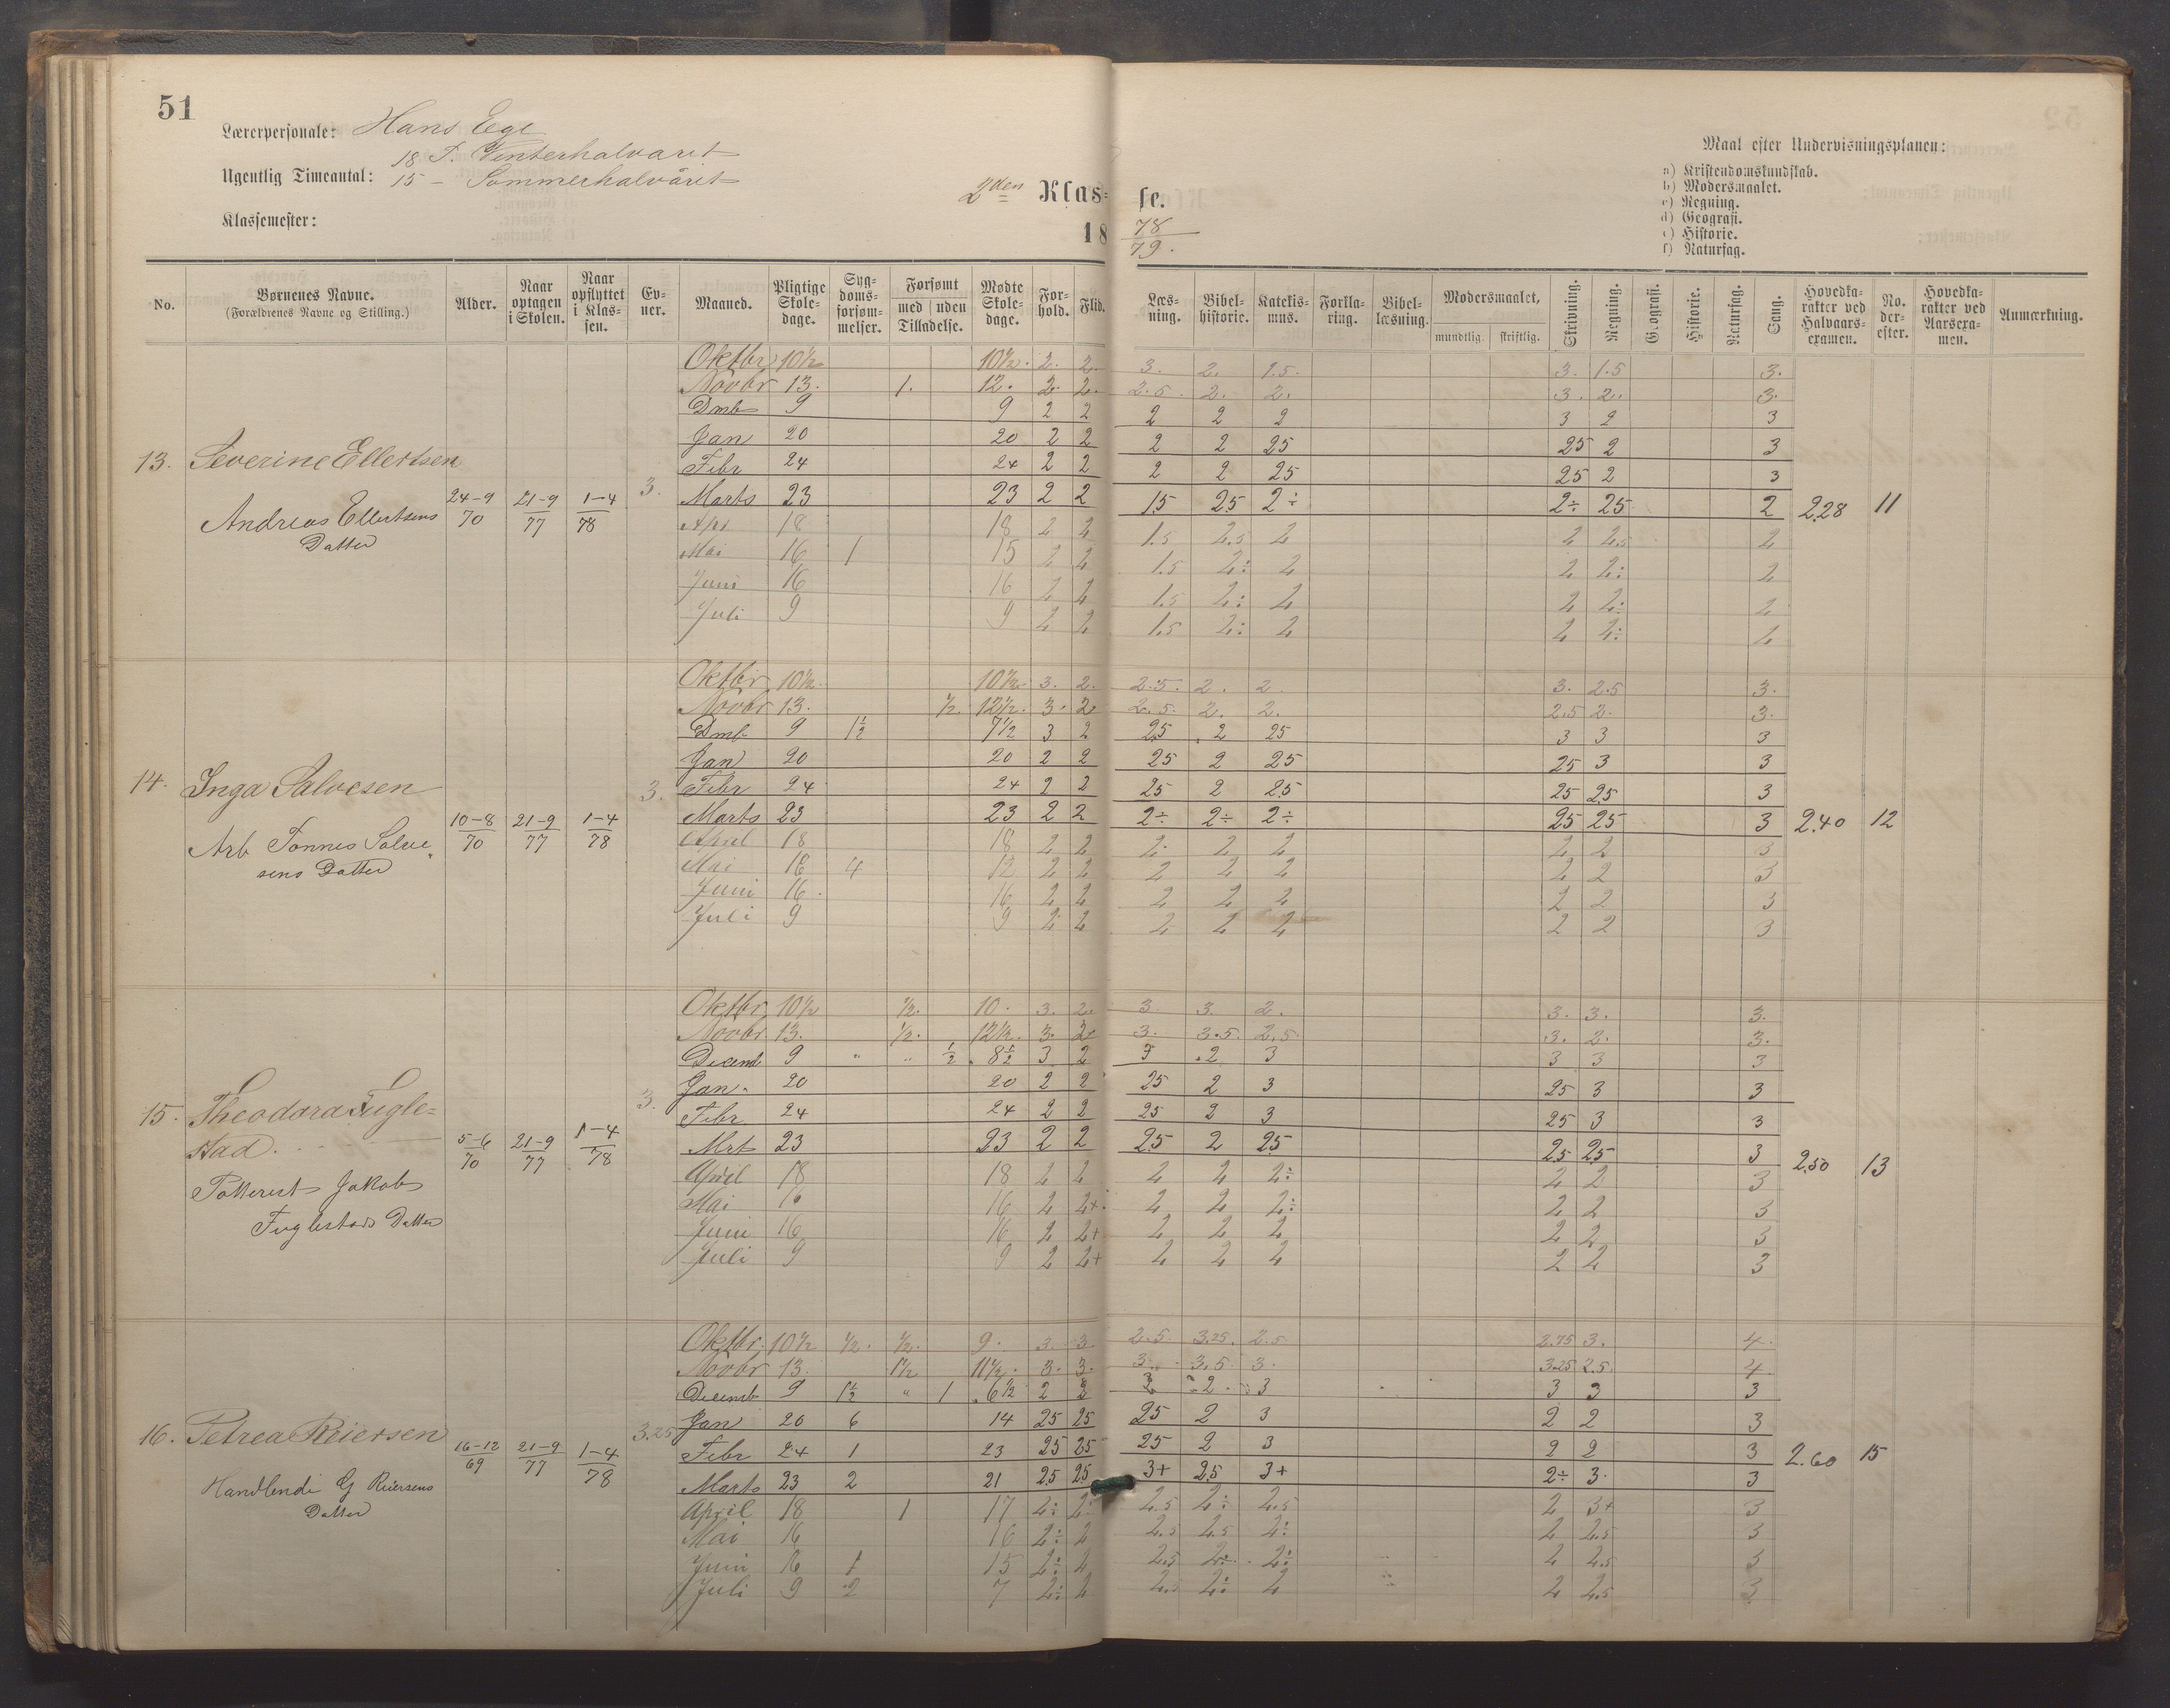 51
Lærerpersonale: Hans Ege
Ugentlig Timeantal: 18 T. Vinterhalvaret
15 – Sommerhalvåret
Klassemester:
2den Klas= se.
18 78/79.
Maal efter Undervisningsplanen:
a) Kristendomskundskab.
b) Modersmaalet.
c) Regning.
d) Geografi.
e) Historie.
f) Naturfag.
No. | Børnenes Navne. (Forældrenes Navne og Stilling.) | Alder. | Naar optagen i Skolen. | Naar opflyttet i Klassen. | Evner. | Maaned. | Pligtige Skoledage. | Sygdomsforsømmelser. | Forsømt med uden Tilladelse. | Mødte Skoledage. | Forhold. | Flid. | Læsning. | Bibelhistorie. | Katekismus. | Forklaring. | Bibellæsning. | Modersmaalet, mundtlig. skriftlig. | Skrivning. | Regning. | Geografi. | Historie. | Naturfag. | Sang. | Hovedkarakter ved Halvaarsexamen. | No. derefter. | Hovedkarakter ved Aarsexamen. | Anmærkning.
13. Severine Ellertsen
Andreas Ellertsens
Datter
24-9/70 21-9/77 1-4/78 3.
Oktbr 10½ 10½. 2. 2. 3. 2. 1.5. 3. 1.5 3.
Novbr 13. 1. 12. 2. 2. 2.5. 2. 2. 3. 2. 3.
Dmb 9 9 2 2 2 2 2 3 2 3
Jan 20 20 2 2 2 2 25 25 2 3
Febr 24 24 2 2 2 2 25 25 2 3
Marts 23 23 2 2 15 25 2÷ 2÷ 25 2 2.28 11
Apr 18 18 2 2 1.5 2.5 2 2 2.5 2
Mai 16 1 15 2 2 1.5 2÷ 2 2 2÷ 2
Juni 16 16 2 2 1.5 2÷ 2 2 2÷ 2
Juli 9 9 2 2 1.5 2÷ 2 2 2÷ 2
14. Inga Salvesen
Arb Tønnes Salve
sens Datter
10-8/70 21-9/77 1-4/78 3.
Oktbr 10½. 10½. 3. 2. 2.5. 2. 2. 3. 2.5 3.
Novbr 13. ½. 12½. 3. 2. 2.5. 2. 2. 2.5 2. 3.
Dmb 9 1½ 7½ 3 2 25 2 25 3 3 3
Jan 20 20 2 2 25 2 25 25 3 3
Febr 24 24 2 2 25 2 25 25 25 3
Marts 23 23 2 2 2÷ 2÷ 2÷ 25 25 3 2.40 12
April 18 18 2 2 2 2 2 2 2 3
Mai 16 4 12 2 2 2 2 2 2 2 3
Juni 16. 16 2 2 2 2 2 2 2 3
Juli 9 9 2 2 2 2 2 2 2 3
15. Theodora Fugle=
stad.
Jakob
Fuglestads Datter
5-6/70 21-9/77 1-4/78 3.
Oktbr. 10½ ½. 10. 3. 2. 3. 3. 2. 3. 3. 3.
Novbr 13. ½. 12½. 3. 2. 3. 3.5. 2.5. 3. 2. 3.
Decemb 9 " " ½ 8½ 3 2 3 2 3 3 3 3
Jan. 20 20 2 2 25 2 3 25 3 3
Febr 24 24 2 2 25 2 3 25 3 3
Mrt 23 23 2 2 25 2 25 25 25 3 2.50 13
April 18 18 2 2 2 2 2÷ 2 2 3
Mai 16 16 2 2+ 2 2 2÷ 2 2 3
Juni 16 16 2 2+ 2 2 2 2 2 3
Juli 9 9 2 2+ 2 2 2 2 2 3
16. Petrea Reiersen
Handlende G Reiersens
Datter
16-12/69 21-9/77 1-4/78 3.25
Oktbr. 10½ ½. ½. 9. 3. 3. 2.5. 3.25. 2.5. 2.75 3. 4.
Novbr 13. 1½ 11½. 3. 3. 3. 3.5. 3. 3.25 2.5. 4
Decemb 9 1½ " 1 6½ 2 3 2 3 3 3 3
Jan 20 6 14 25 25 25 2 3 2 2 3
Febr 24 1 23 25 25 25 2 3 2 2 3
Marts 23 2 21 25 25 3+ 25 3+ 2÷ 3. 3 2.60 15
April 18 1 17 2÷ 2÷ 2.5 2÷ 2.5 2 3+ 3
Mai 16 16 2÷ 2 2.5 2.5 2÷ 2 2.5 3
Juni 16 1 15 2÷ 2 2.5 2÷ 2÷ 2 2.5 3
Juli 9 2 7 2÷ 2 2.5 2÷ 2 2 2.5 3